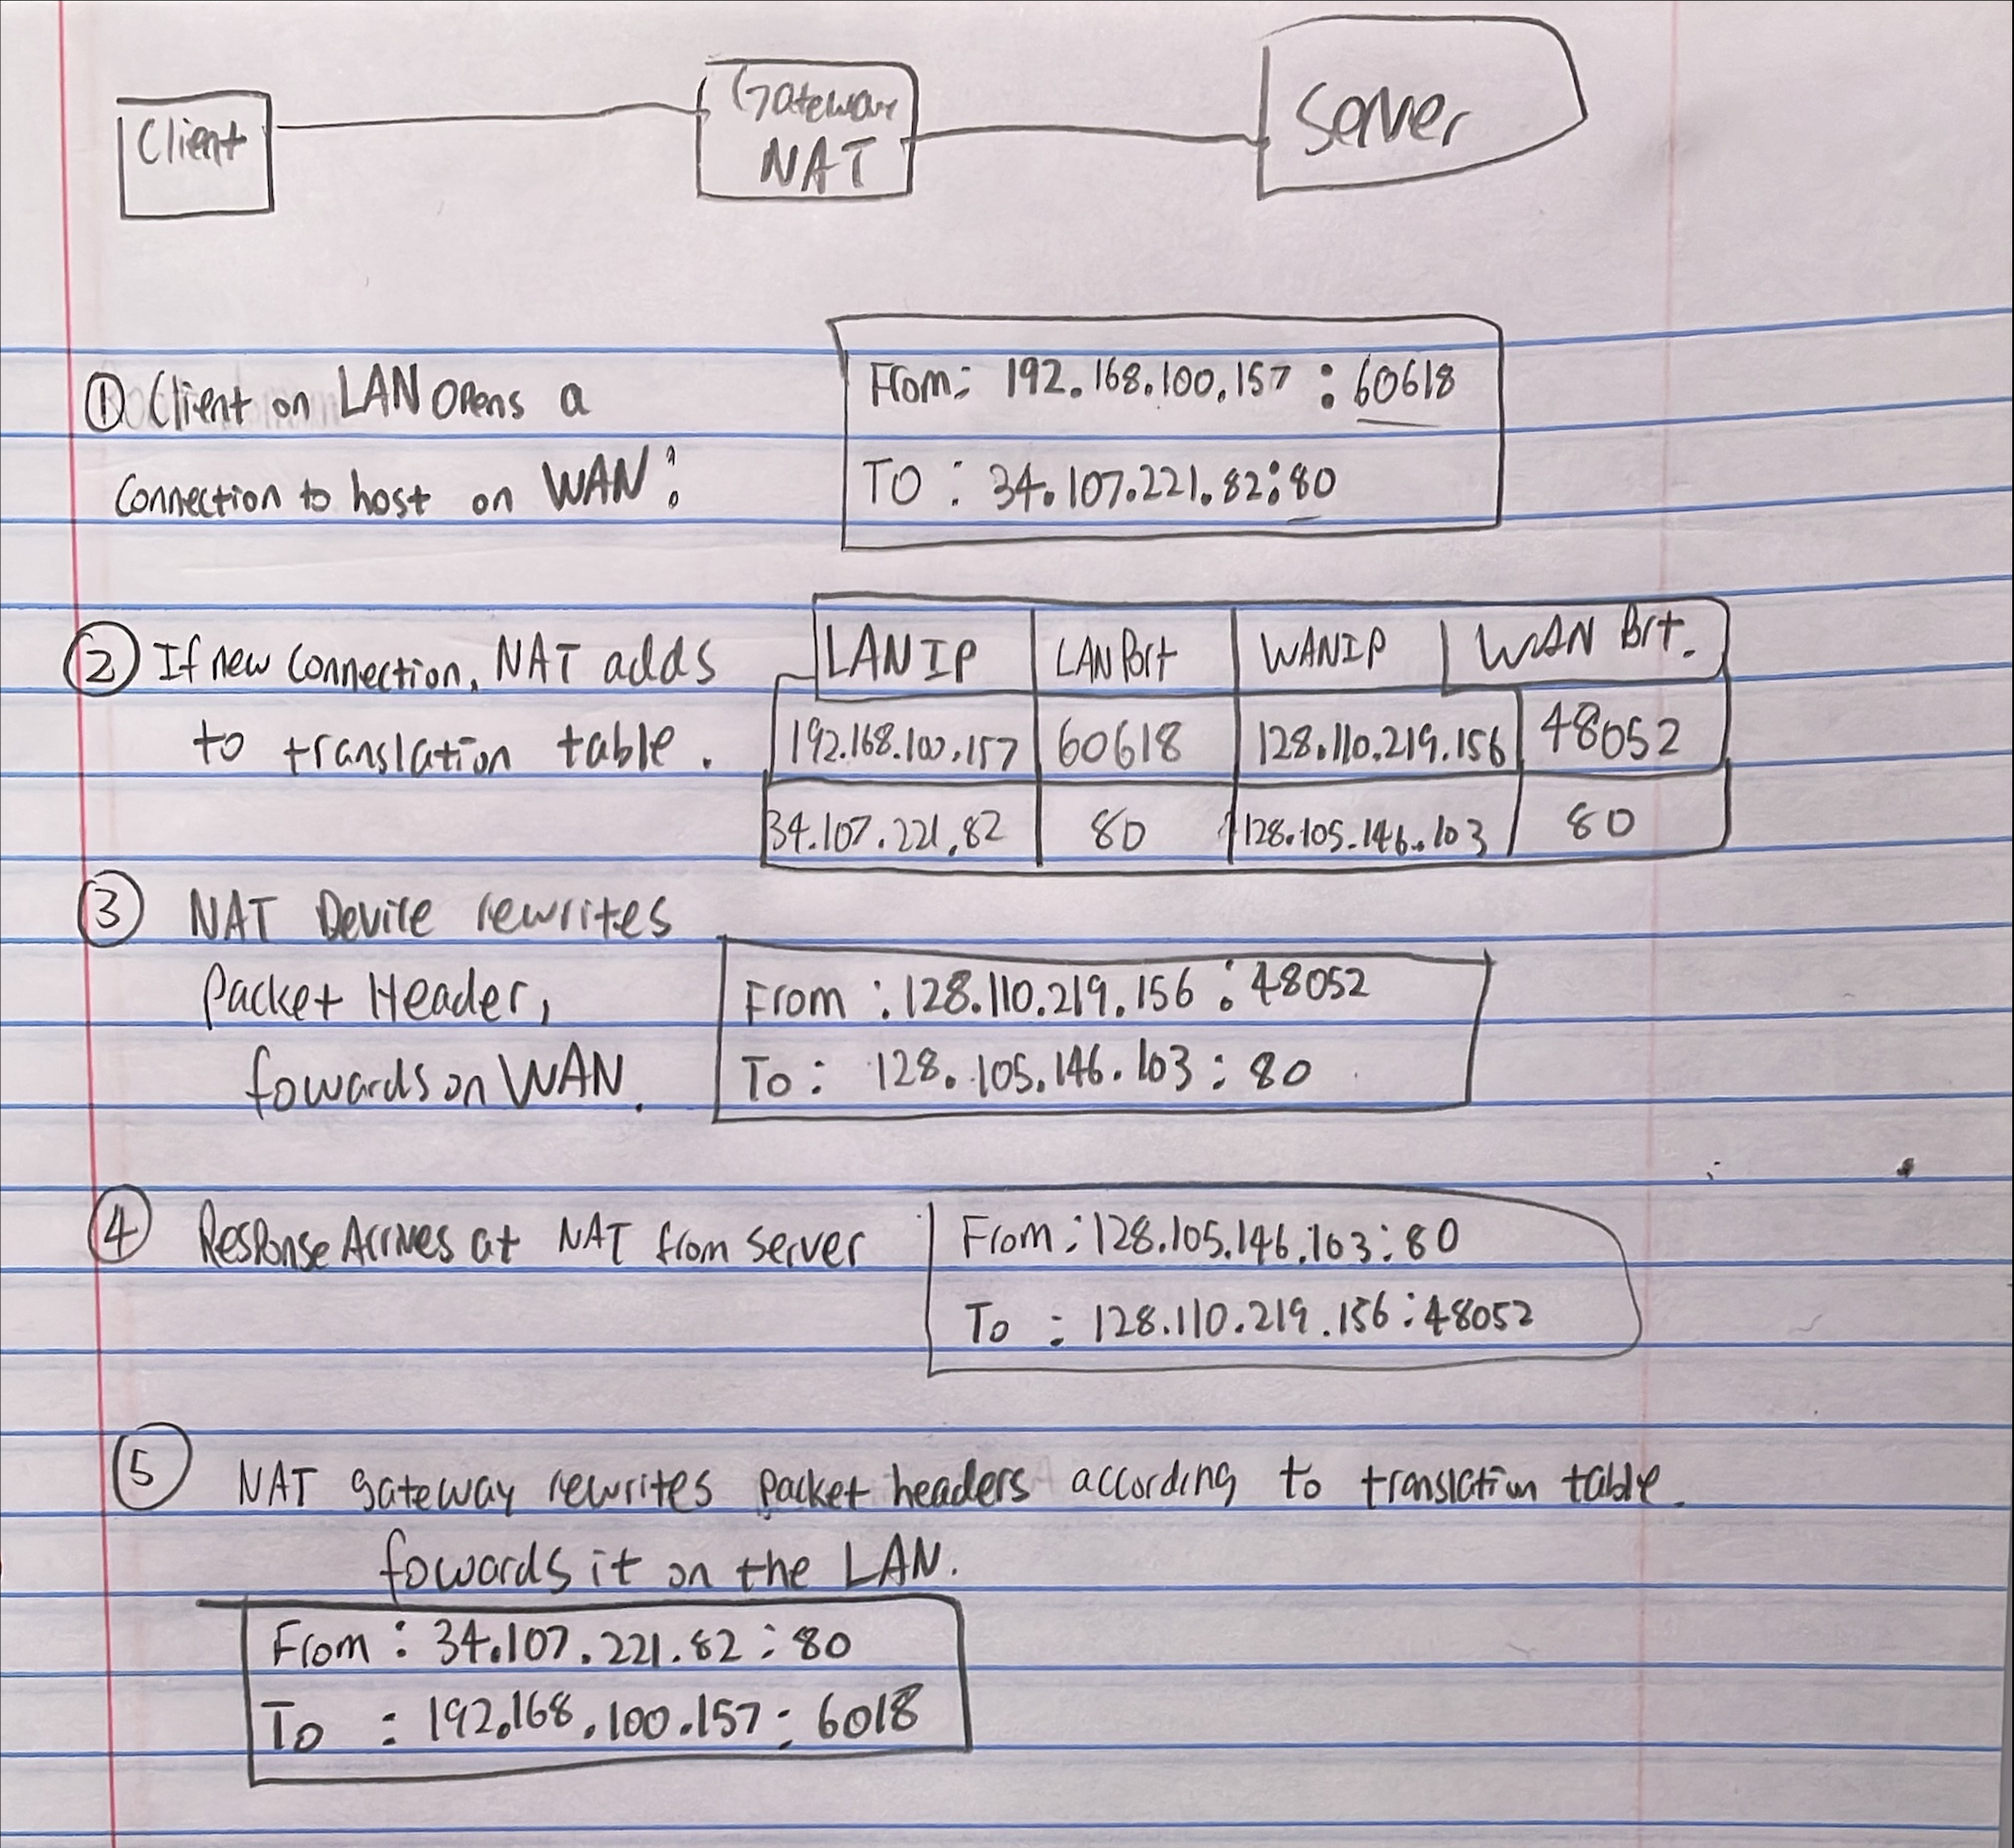 Client
Gateway
NAT
Server
① Client on LAN opens a
Connection to host on WAN:
From: 192.168.100.157 : 60618
TO : 34.107.221.82:80
② If new connection, NAT adds
to translation table.
LAN IP LAN Port WAN IP WAN Port.
192.168.100.157 60618 128.110.219.156 48052
34.107.221.82 80 128.105.146.103 80
③ NAT Device rewrites
Packet Header,
fowards on WAN.
From : 128.110.219.156 : 48052
To : 128.105.146.103 : 80
④ Response Arrives at NAT from server
From : 128.105.146.103 : 80
To : 128.110.219.156 : 48052
⑤ NAT gateway rewrites packet headers according to translation table.
fowards it on the LAN.
From : 34.107.221.82 : 80
To : 192.168.100.157 : 6018